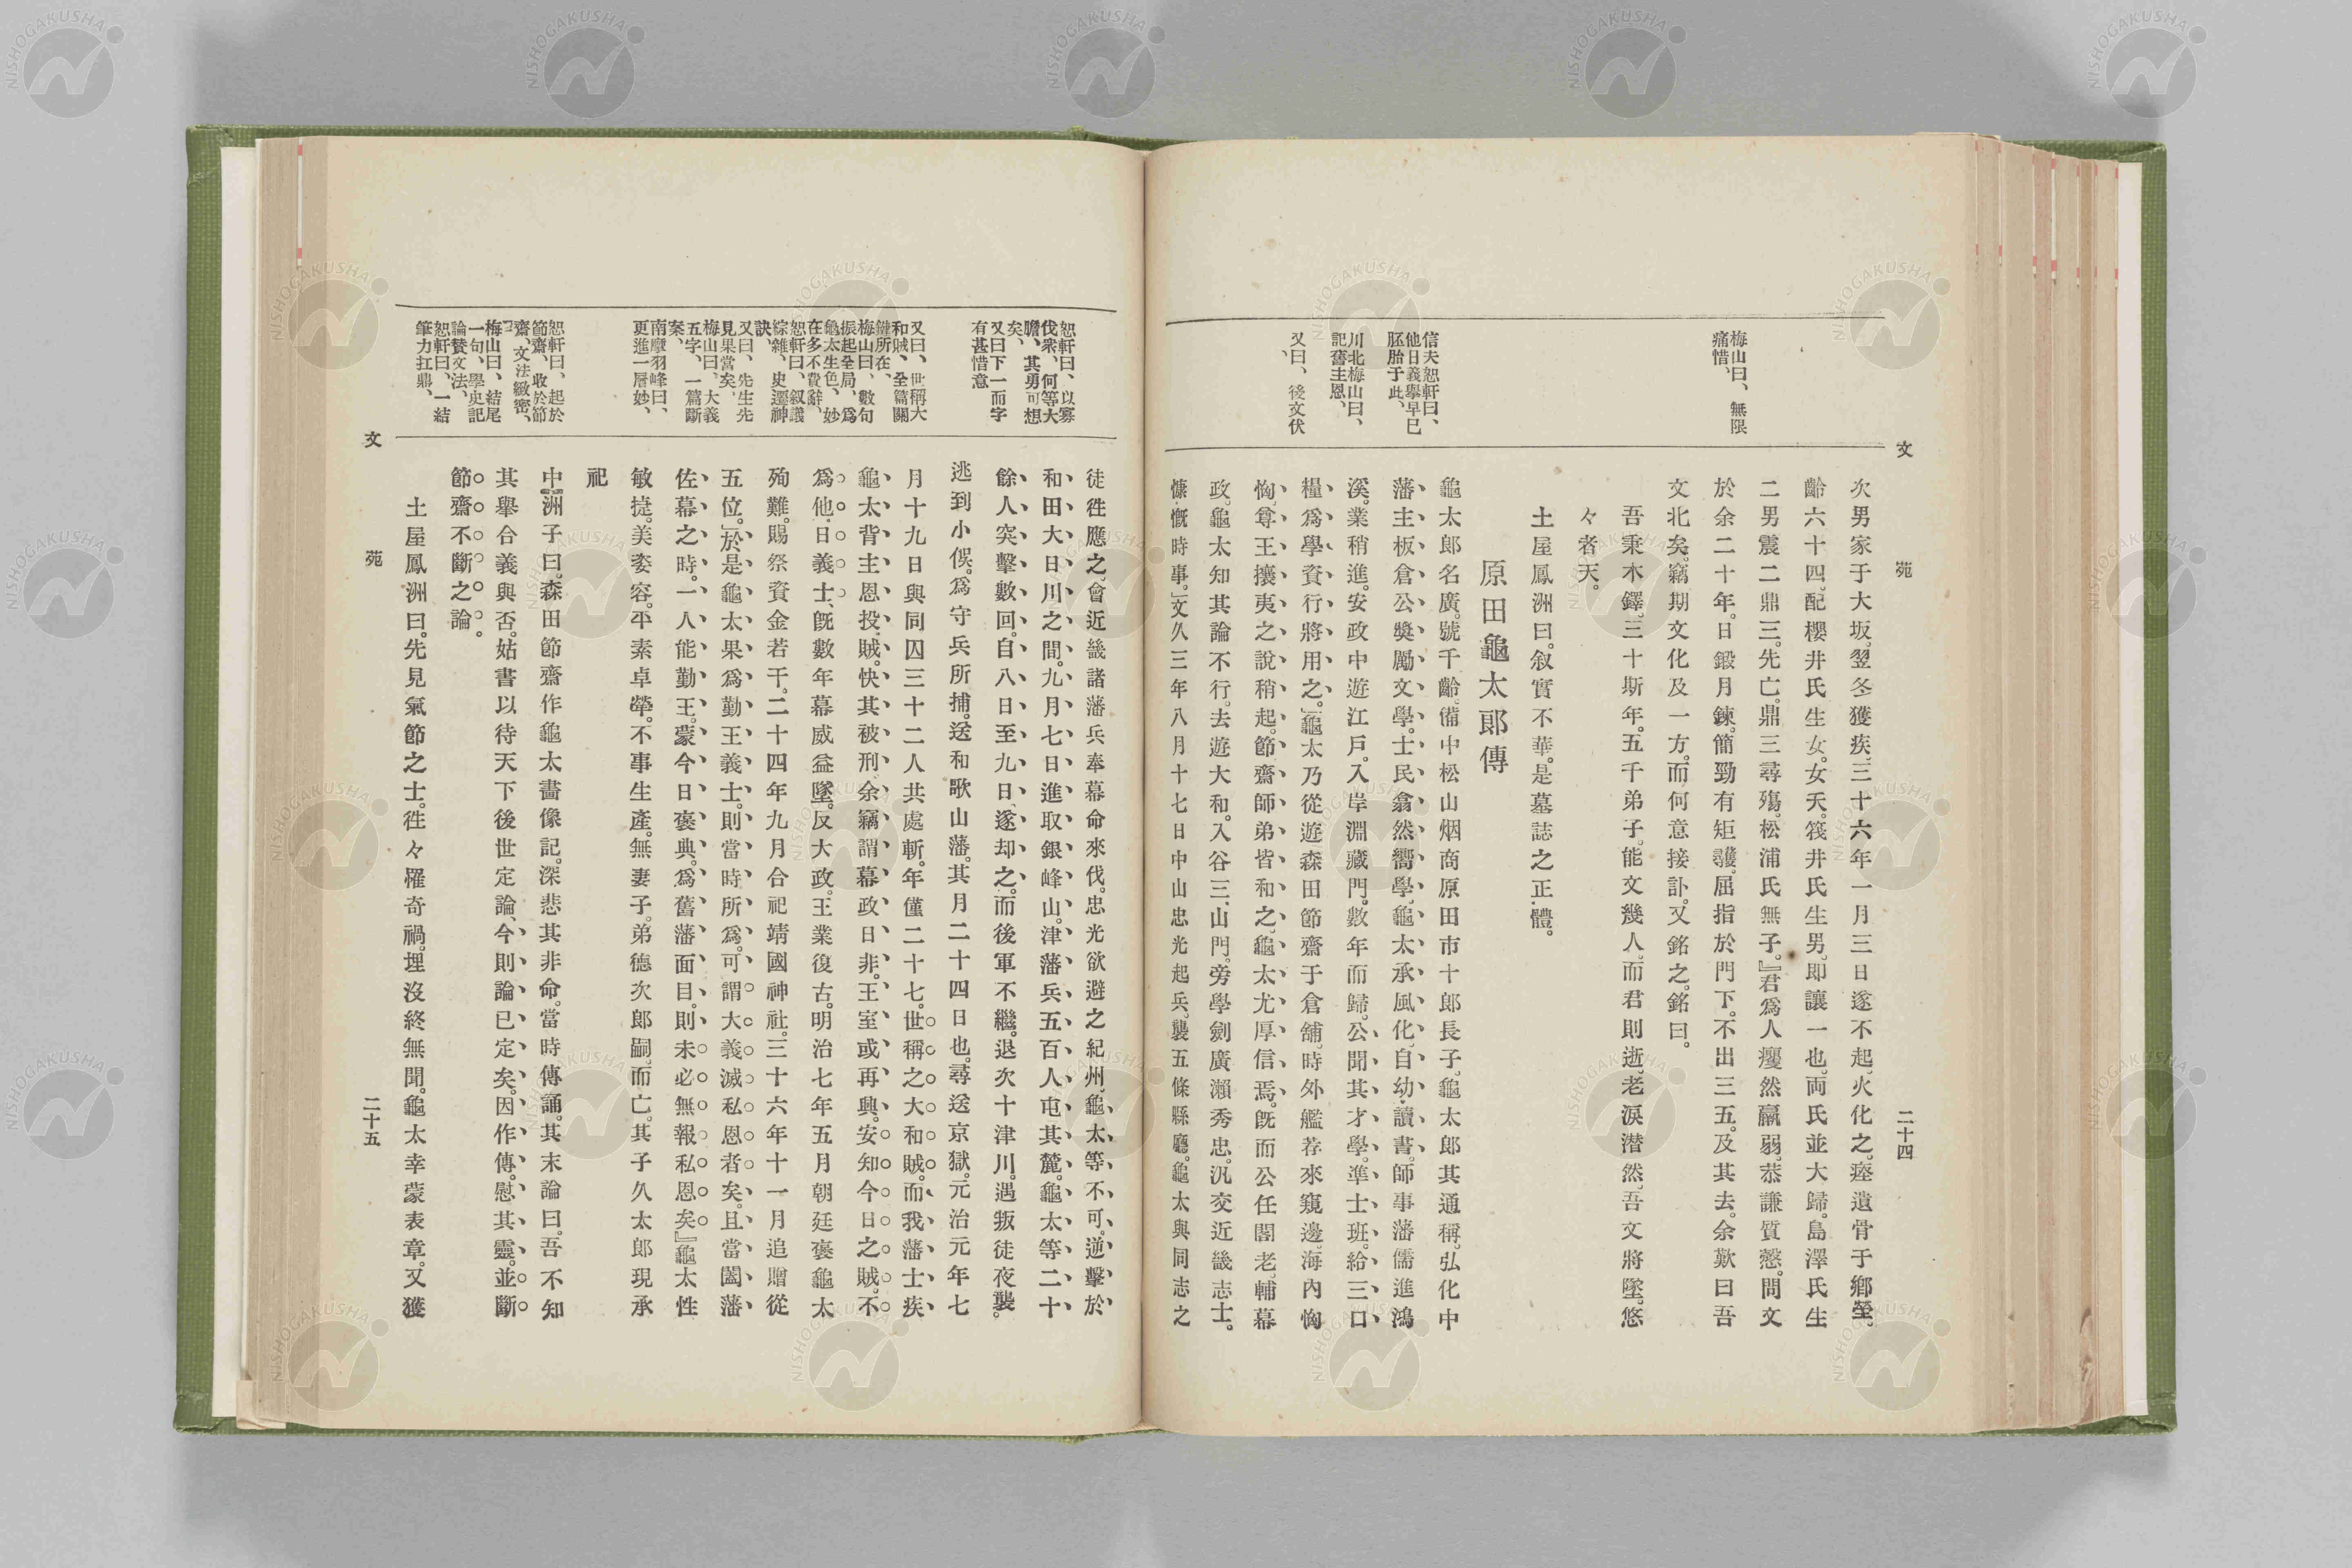 文　苑　二十四
梅山曰、無限
痛惜、
信夫恕軒曰、
他日義擧早已
胚胎于此、
川北梅山曰、
記舊主恩、
又曰、後文伏
、
次男家于大坂。翌冬獲疾、三十六年一月三日遂不起、火化之。瘞遺骨于鄉塋。
齡六十四。配櫻井氏生女。女夭。筏井氏生男。卽讓一也。兩氏並大歸。島澤氏生
二男震二鼎三。先亡。鼎三尋殤。松浦氏無子。』君爲人癯然羸弱。恭謙質愨。問文
於余二十年。日鍛月鍊。簡勁有矩矱。屈指於門下。不出三五。及其去。余歎曰吾
文北矣。竊期文化及一方。而何意接訃。又銘之。銘曰。
吾秉木鐸。三十斯年。五千弟子。能文幾人。而君則逝。老淚潸然。吾文將墜。悠
々者天。
土屋鳳洲曰。叙實不華。是墓誌之正體。
原田龜太郞傳
龜太郎名廣。號千齡。備中松山烟商原田市十郎長子。龜太郎其通稱。弘化中
藩主板倉公奬勵文學。士民翕然嚮學。龜太承風化、自幼讀書。師事藩儒進鴻
溪。業稍進。安政中遊江戶。入岸淵藏門。數年而歸。公聞其才學。準士班。給三口
糧、爲學資行將用之。』龜太乃從遊森田節齋于倉舖。時外艦荐來窺邊。海內恟
恟、尊王攘夷之說稍起。節齋師弟皆和之、龜太尤厚信焉。旣而公任閣老。輔幕
政。龜太知其論不行。去遊大和。入谷三山門。旁學劍廣瀨秀忠。汎交近畿志士。
慷慨時事。』文久三年八月十七日中山忠光起兵。襲五條縣廳。龜太與同志之
恕軒曰、以寡
伐衆、何等大
膽、其勇可想
矣、
又曰下一而字
有甚惜意
又曰、世稱大
和賊、全篇關
鍵所在、
梅山曰、數句
振起全局、爲
龜太生色、妙
在多不費辭、
恕軒曰、叙議
綜雜、史遷神
訣、
又曰、先生先
見果當矣、
梅山曰、大義
五字、一篇斷
案、
南摩羽峰曰、
更進一層妙、
恕軒曰、起於
節齋、收於節
齋、文法緻密、
梅山曰、結尾
一句、學史記
論賛文法、
恕軒曰、一結
筆力扛鼎、
徒徃應之、會近畿諸藩兵奉幕命來伐。忠光欲避之紀州、龜太等不可。逆擊於
和田大日川之間。九月七日進取銀峰山。津藩兵五百人屯其麓。龜太等二十
餘人突擊數回。自八日至九日、遂却之。而後軍不繼。退次十津川。遇叛徒夜襲。
逃到小俣。爲守兵所捕。送和歌山藩。其月二十四日也。尋送京獄。元治元年七
月十九日與同囚三十二人共處斬。年僅二十七。世稱之大和賊。而我藩士疾
龜太背主恩投賊。快其被刑、余竊謂幕政日非。王室或再興。安知今日之賊。不
爲他日義士、旣數年幕威益墜。反大政。王業復古。明治七年五月朝廷褒龜太
殉難。賜祭資金若干。二十四年九月合祀靖國神社。三十六年十一月追贈從
五位。』於是龜太果爲勤王義士。則當時所爲。可謂大義滅私恩者矣。且當闔藩
佐幕之時。一人能勤王。蒙今日褒典。爲舊藩面目。則未必無報私恩矣。』龜太性
敏捷。美姿容。平素卓犖。不事生產。無妻子。弟德次郎嗣。而亡。其子久太郎現承
祀
中洲子曰。森田節齋作龜太畵像記。深悲其非命。當時傳誦。其末論曰。吾不知
其擧合義與否。姑書以待天下後世定論、今則論已定矣。因作傳。慰其靈。並斷
節齋不斷之論。
土屋鳳洲曰。先見氣節之士。徃々罹奇禍。埋沒終無聞。龜太幸蒙表章。又獲
文　苑　二十五